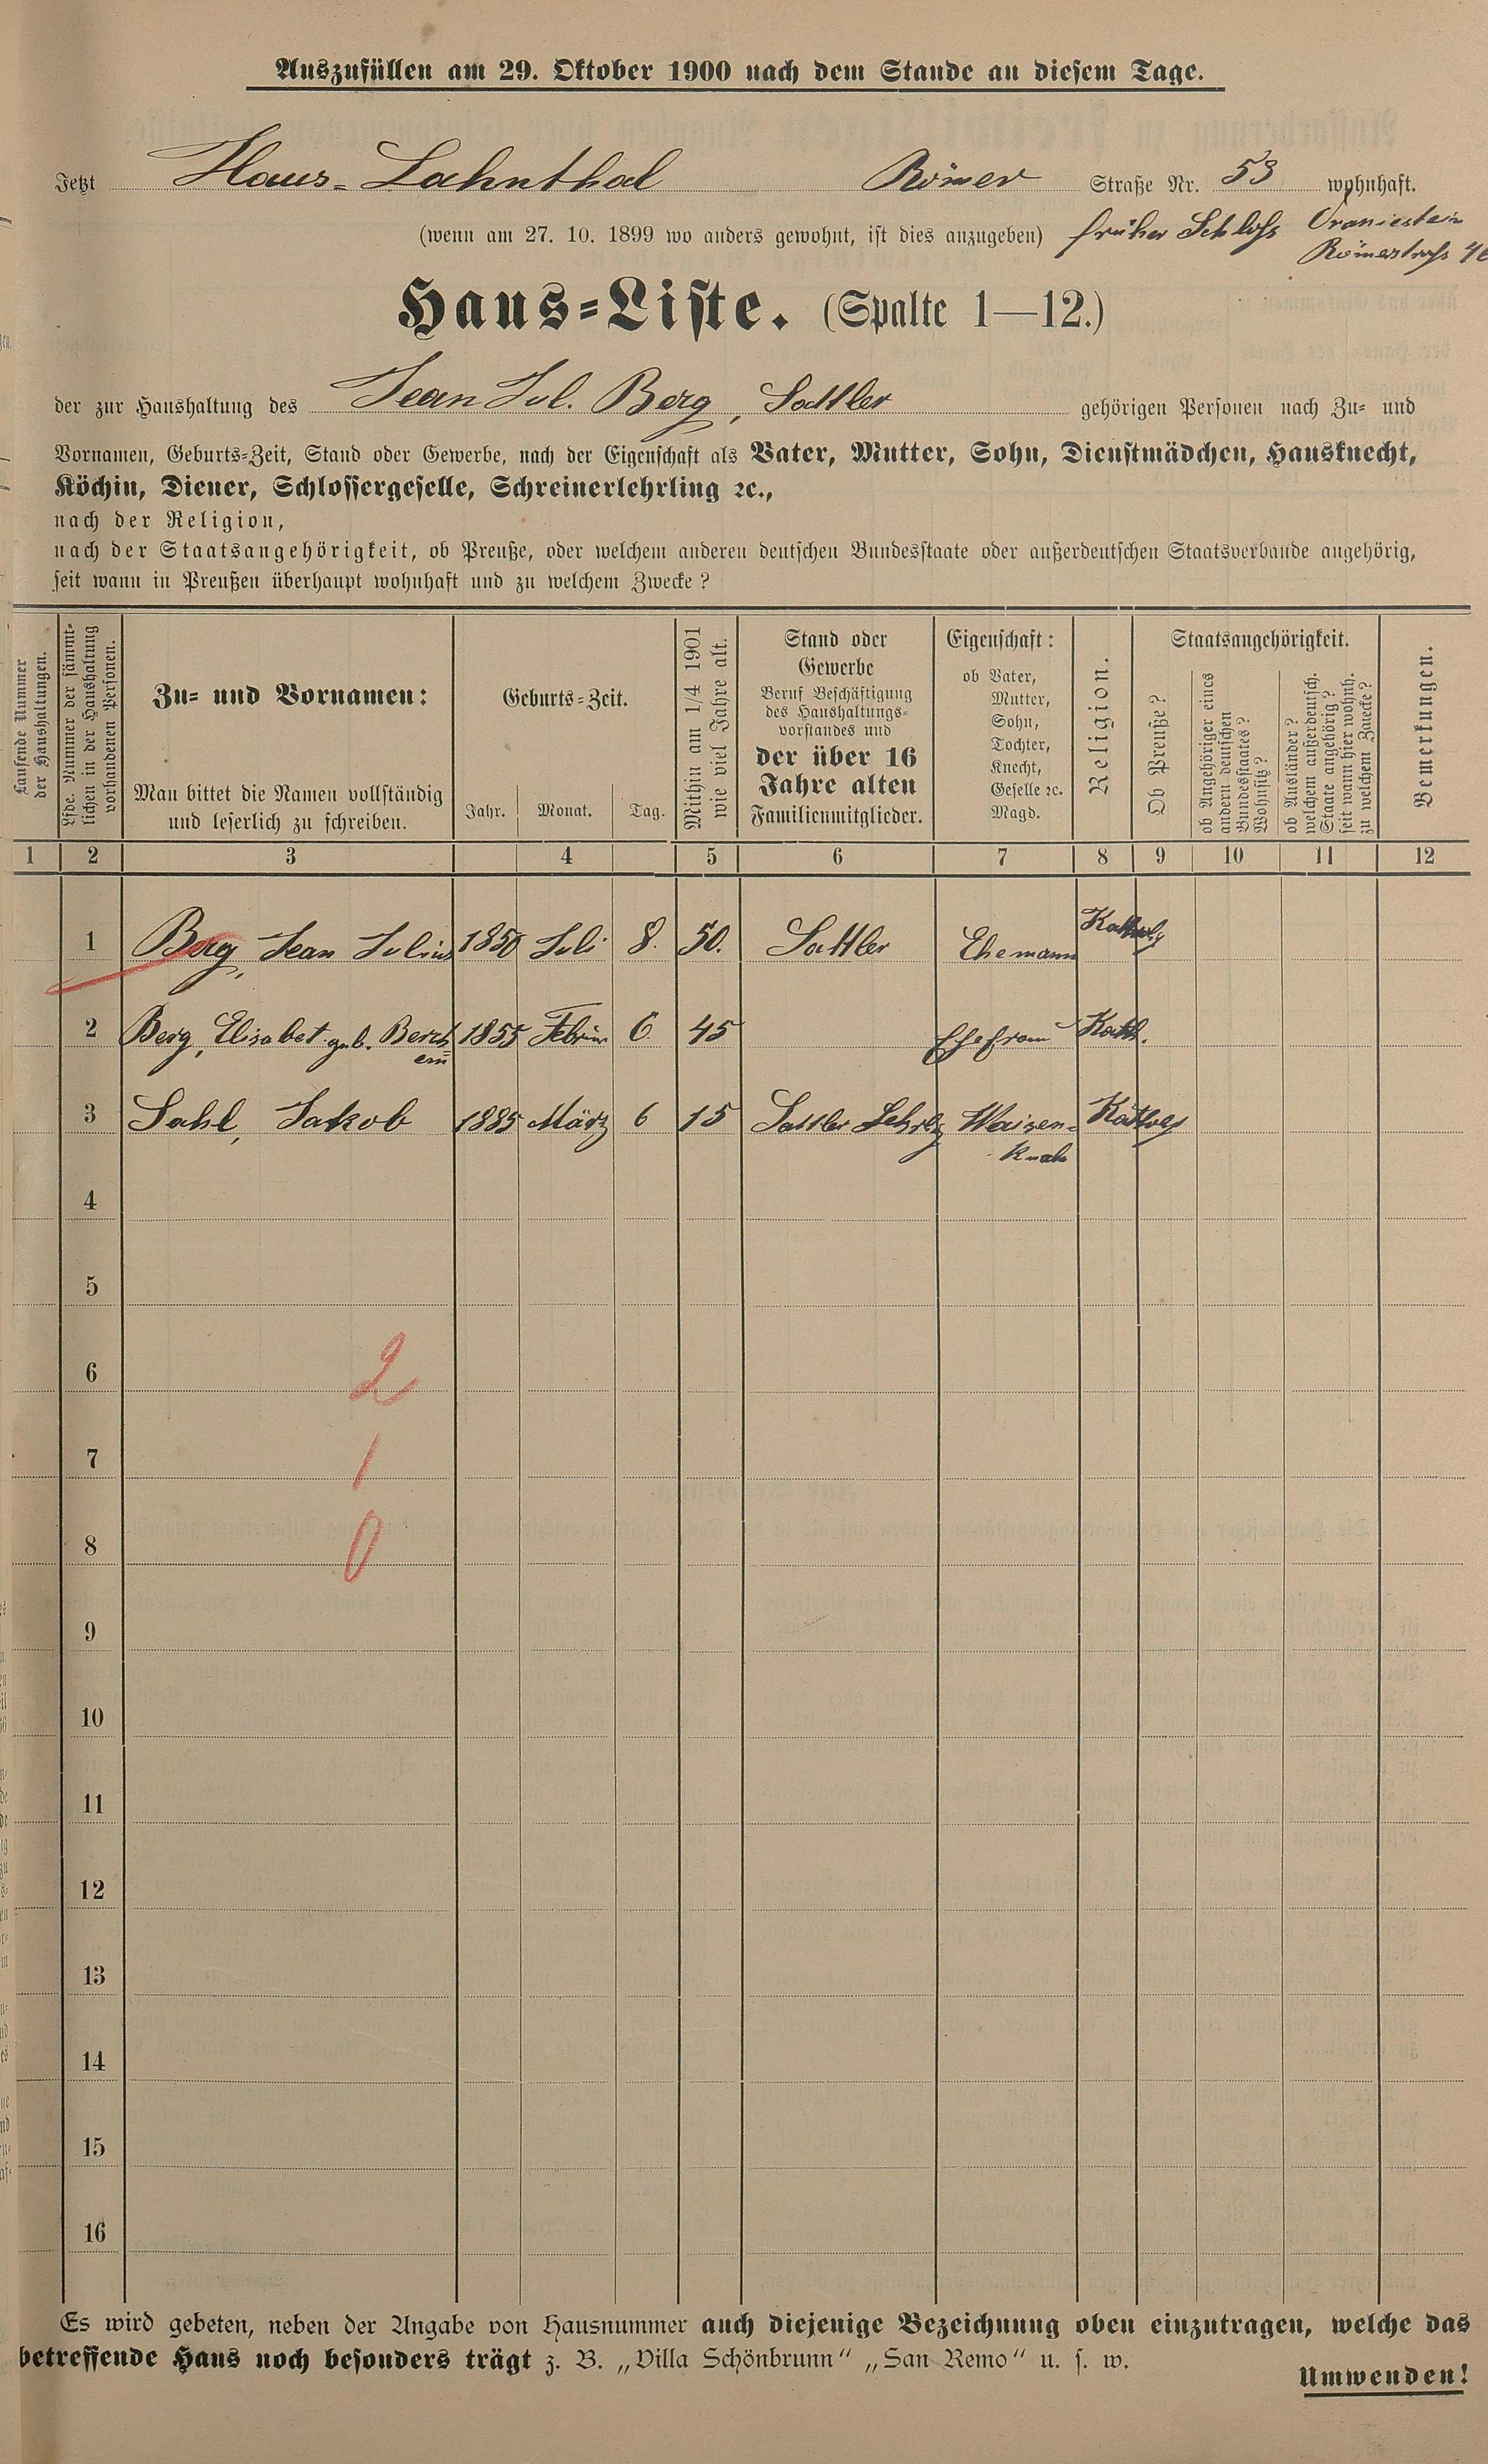 Auszufüllen am 29. Oktober 1900 nach dem Stande an diesem Tage.
Jetzt Haus-Lahnthal Römer Straße Nr. 53 wohnhaft.
(wenn am 27. 10. 1899 wo anders gewohnt, ist dies anzugeben) früher Schloss Oranienstein
Römerstrasse
Haus-Liste. (Spalte 1—12.)
der zur Haushaltung des Jean Jul. Berg, Sattler gehörigen Personen nach Zu- und
Vornamen, Geburts-Zeit, Stand oder Gewerbe, nach der Eigenschaft als Vater, Mutter, Sohn, Dienstmädchen, Hausknecht,
Köchin, Diener, Schlossergeselle, Schreinerlehrling ꝛc.,
nach der Religion,
nach der Staatsangehörigkeit, ob Preuße, oder welchem anderen deutschen Bundesstaate oder außerdeutschen Staatsverbande angehörig,
seit wann in Preußen überhaupt wohnhaft und zu welchem Zwecke?
Laufende Nummer
der Haushaltungen.
Lfde. Nummer der sämmt-
lichen in der Haushaltung
vorhandenen Personen.
Zu- und Vornamen:
Man bittet die Namen vollständig
und leserlich zu schreiben.
Geburts-Zeit.
Jahr. Monat. Tag.
Mithin am 1/4 1901
wie viel Jahre alt.
Stand oder
Gewerbe
Beruf Beschäftigung
des Haushaltungs-
vorstandes und
der über 16
Jahre alten
Familienmitglieder.
Eigenschaft:
ob Vater,
Mutter,
Sohn,
Tochter,
Knecht,
Geselle ꝛc.
Magd.
Religion.
Staatsangehörigkeit.
Ob Preuße?
ob Angehöriger eines
andern deutschen
Bundesstaates?
Wohnsitz?
ob Ausländer?
welchem außerdeutsch.
Staate angehörig?
seit wann hier wohnh.
zu welchem Zwecke?
Bemerkungen.
1 2 3 4 5 6 7 8 9 10 11 12
1 Berg, Jean Julius 1850 Juli 8. 50. Sattler Ehemann Katholg
2 Berg, Elisabet geb. 1855 Februar 6. 45 Ehefrau Kath.
3 Sahl, Jakob 1885 März 6 15 Sattler Lehrlg Waisen- Kathol
Knabe
4
5
6 2
7 1
8 0
9
10
11
12
13
14
15
16
Es wird gebeten, neben der Angabe von Hausnummer auch diejenige Bezeichnung oben einzutragen, welche das
betreffende Haus noch besonders trägt z. B. „Villa Schönbrunn“ „San Remo“ u. s. w.
Umwenden!